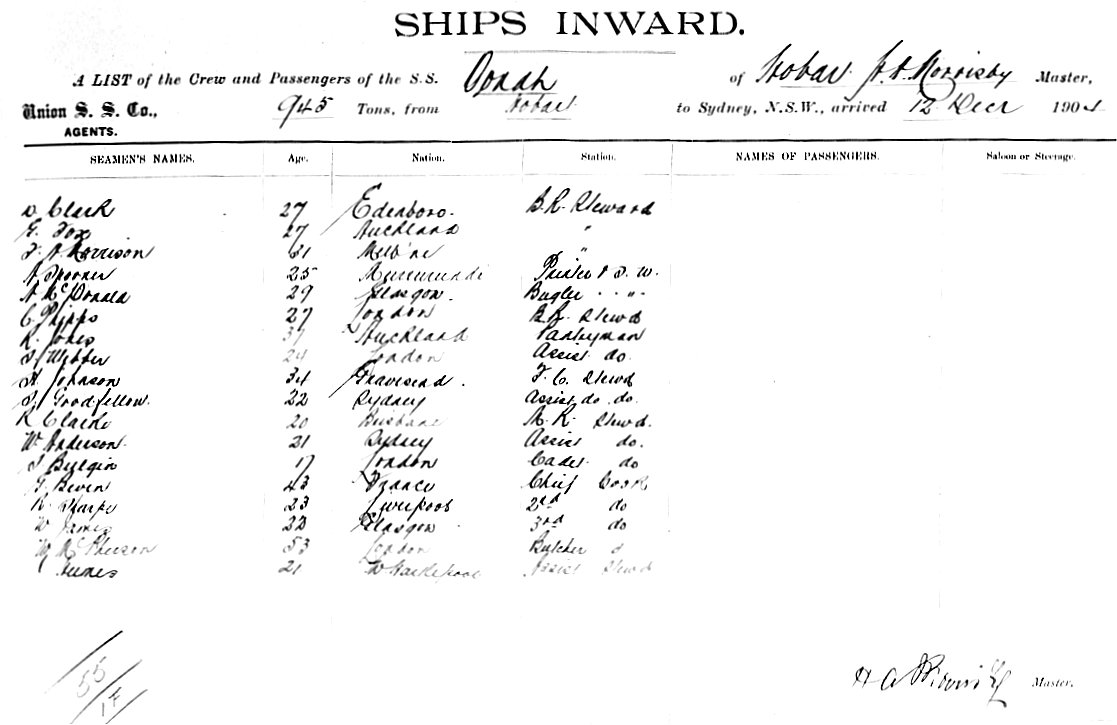 SHIPS INWARD.
A LIST of the Crew and Passengers of the S.S. Oonah of Hobart Master,
Union S. S. Co., 945 Tons, from Hobart to Sydney, N.S.W., arrived 12 Decr 190
AGENTS.
SEAMEN'S NAMES. Age. Nation. Station. NAMES OF PASSENGERS. Saloon or Steerage.
D Clark 27 Edenboro. B.R. Steward
G. Fox 27 Auckland "
F A Morrison 31 Melb'ne "
A Spooner 25 Murrurundi
A McDonald 29 Glasgow. Bugler " "
C Phipps 27 London B.R. Stewd
R. Jones 37 Auckland Pantryman
Webber 24 London Assist do.
A Johnson 34 Gravesend. F. C. Stewd
Goodfellow. 22 Sydney Assist do. do.
R Clarke 20 Brisbane M. R. Stewd.
W. Anderson. 21 Sydney Assist do.
Bulgin 17 London Cadet do
G. Beven 43 France Chief Cook
R. Sharpe 23 Liverpool 2nd do
W James 22 Glasgow 3rd do
W McPherson 53 London Butcher
21 W Hartlepool Assist Stewd
55/17
Master.